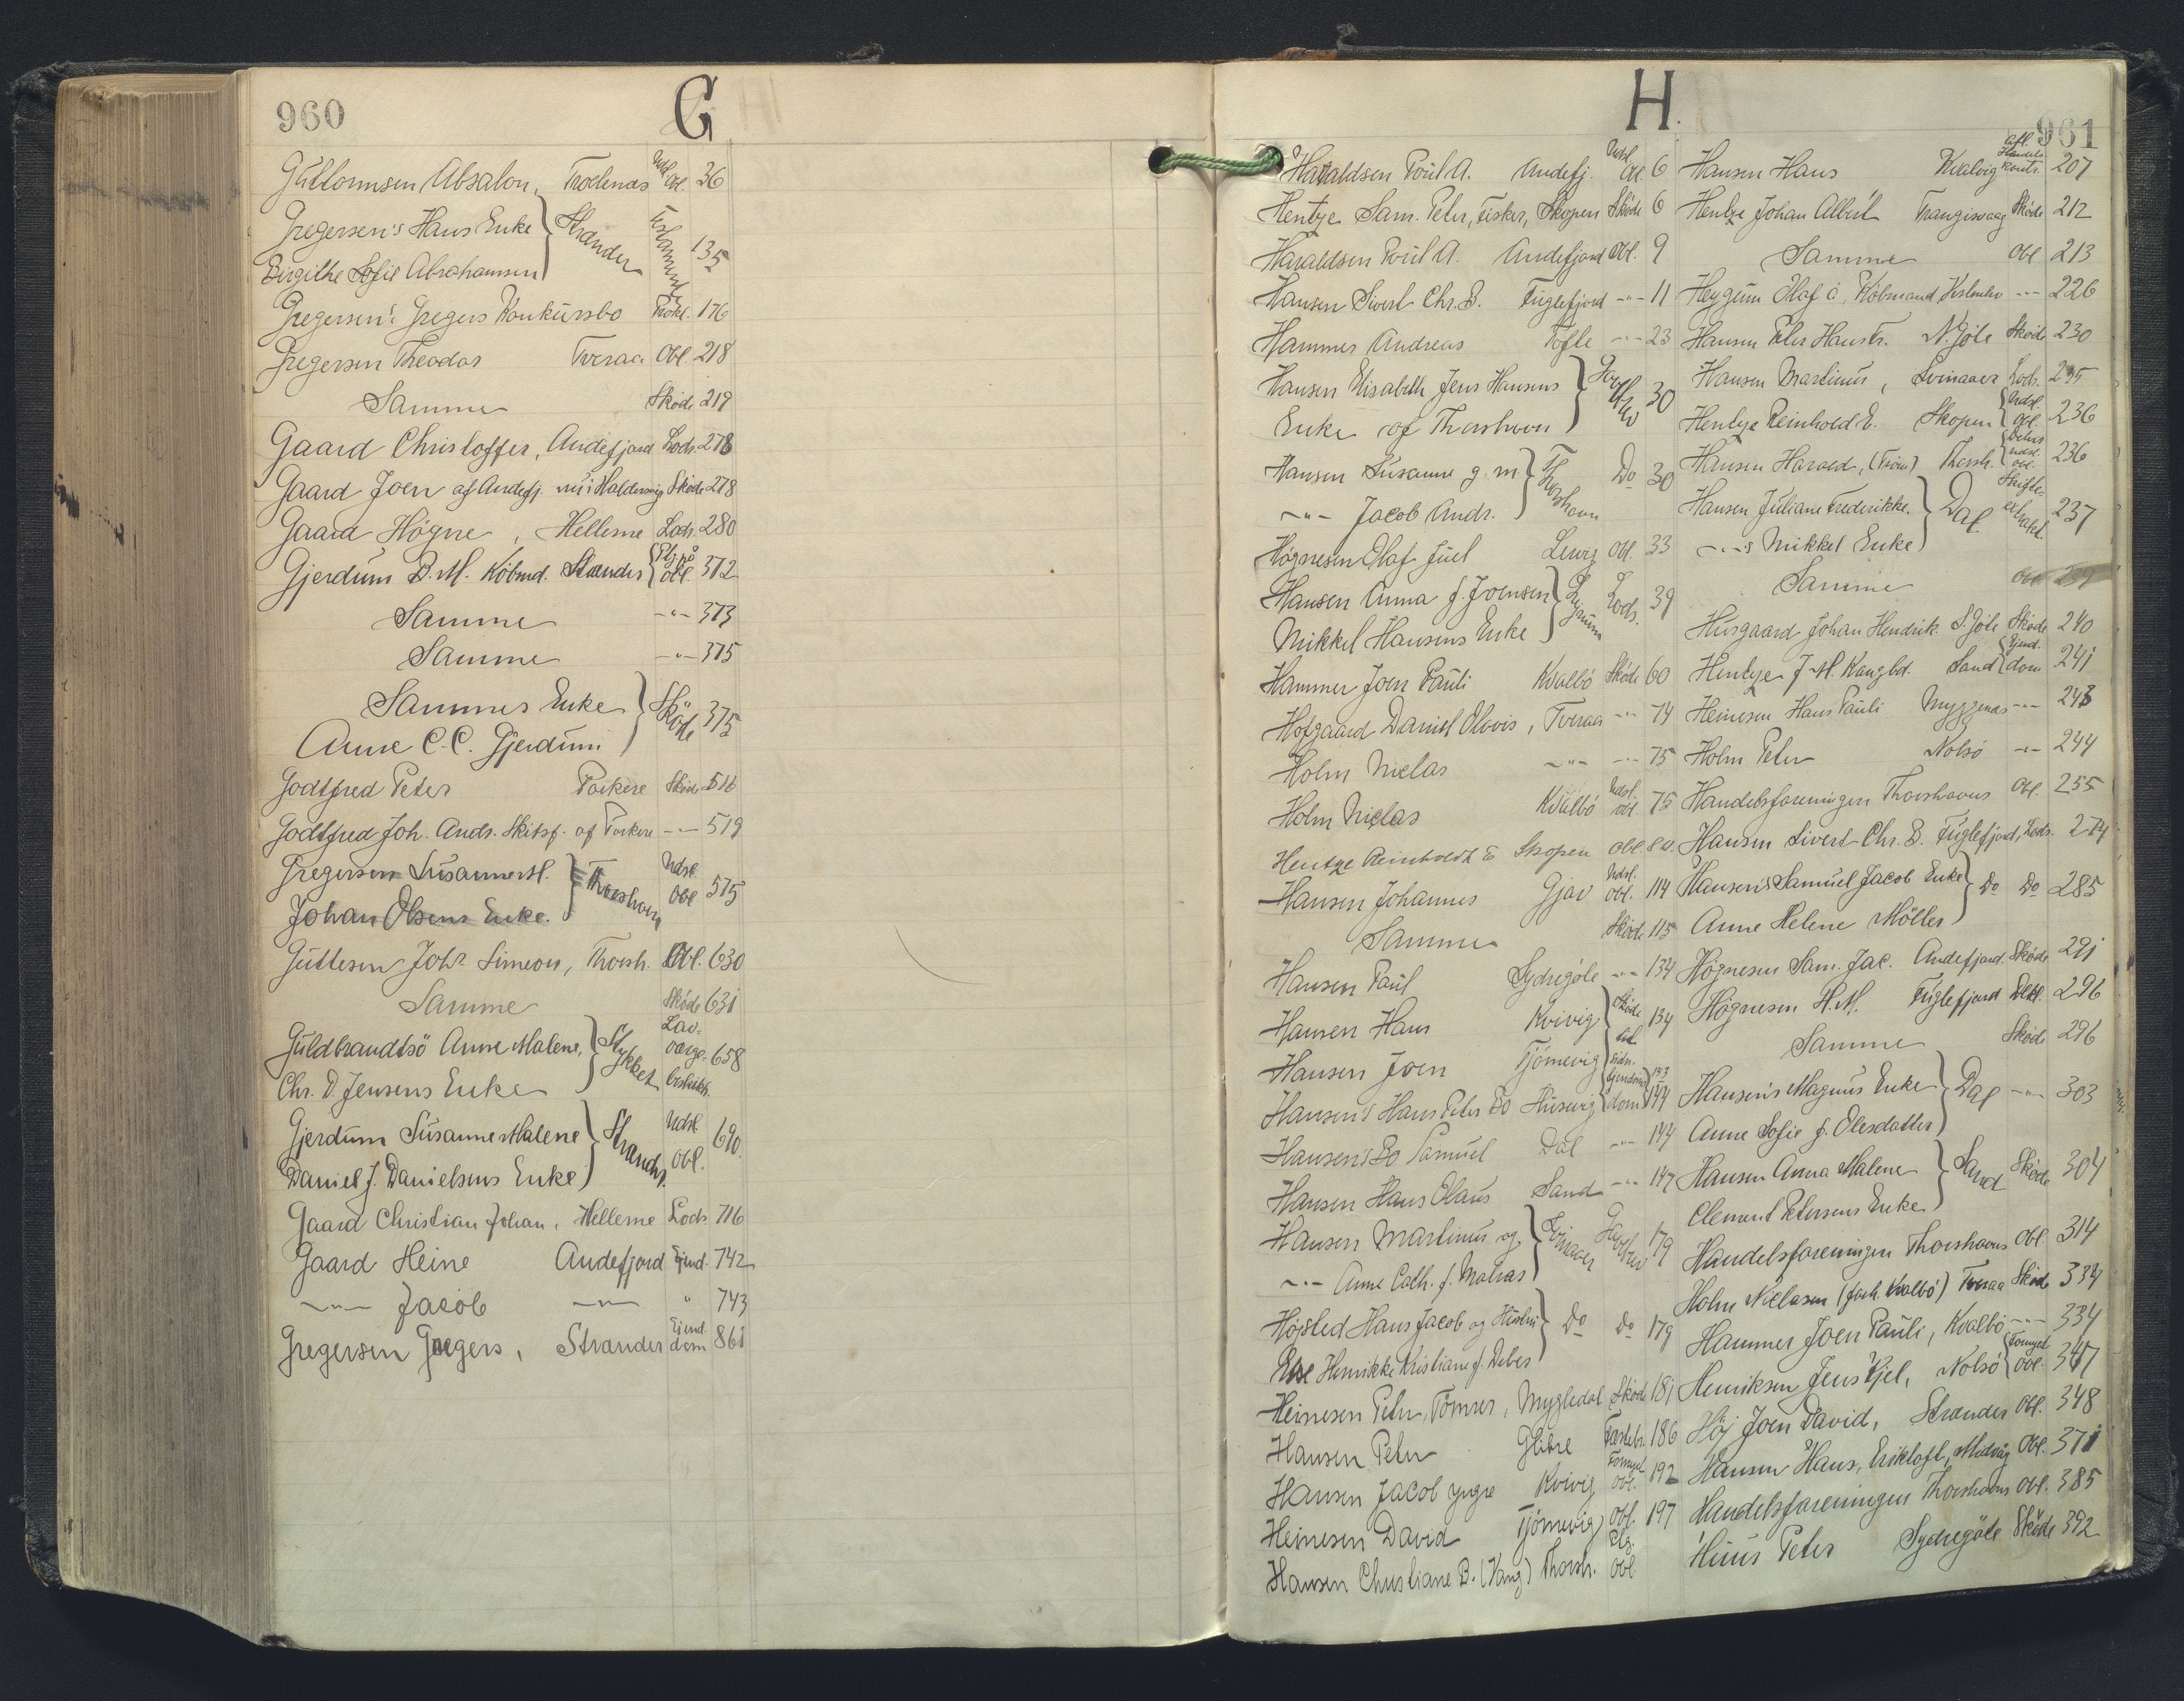 960
G
Guttormsen Absalon, Trollenæs Udsl. Obl. 36
Gregersen's Hans Enke } Strander Testamente 135
Birgithe Sofie Abrahamsen
Gregersen's Gregers Konkursbo Prokl. 176
Gregersen Theodor Tveraa Obl. 218
Samme Sköde 219
Gaard Christoffer, Andefjord Lods. 278
Gaard Joen af Andefj. nu i Haldersvig Sköde 278
Gaard Högne, Hellerne Lods. 280
Gjerdum D. M. Købmd. Strander { Obl. 372
Samme -"- 373
Samme -"- 375
Sammes Enke } Sköde 375
Anne C. C. Gjerdum
Godtfred Peter Porkere Sköde 516
Godtfred Joh. Andr. Skibsf. af Porkere -"- 519
Gregersen Susanne M. } Thorshavn Udsl. Obl 575
Johan Olsens Enke.
Guttesen Johs Simeon, Thorsh. Obl. 630
Samme Sköde 631
Guldbrandtsö Anne Malene, } Stykket Lav-værge-beskikk. 658
Chr. D. Jensens Enke
Gjerdum Susanne Malene } Strander. Udsl. Obl. 690.
Daniel J. Danielsens Enke
Gaard Christian Johan, Hellerne Lods. 716
Gaard Heine Andefjord Ejend. 742
-"- Jacob -"- " 743
Gregersen Gregers, Strander Ejend.dom 861
H.
961
Haraldsen Poul A. Andefj. Udsl. Obl 6
Hentze Sam. Peter, Fisker, Skopen Sköde 6
Haraldsen Poul A. Andefjord Obl. 9
Hansen Sivert Chr. B. Fuglefjord -"- 11
Hammer Andreas Tofte -"- 23
Hansen Elisabeth Jens Hansens } 30
Enke af Thorshavn
Hansen Susanne g. m } Thorshavn Do 30
-"- Jacob Andr.
Högnesen Olaf Juel Lervig Obl. 33
Hansen Anna f. Joensen } Lods. 39
Mikkel Hansens Enke
Hammer Joen Pauli Kvalbö Sköde 60
Hofgaard Daniel Clovis, Tveraa -"- 74
Holm Niclas -"- -"- 75
Holm Niclas Kvalbö Udsl. obl. 75
Hentze Reinholdt E Skopen Obl. 80.
Hansen Johannes Gjov Udsl. obl. 114
Samme Sköde 115
Hansen Paul Sydregöte -"- 134
Hansen Hans Kvivig { Sköde 134
Hansen Joen Tjörnevig { Ejendom 143
Hansen's Hans Peter Bo Husevig { dom 144
Hansen's Bo Samuel Dal -"- 144
Hansen Hans Olaus Sand -"- 147
Hansen Martinus og } Svinaaer 179
-"- Anne Cath. f. Matras
Højsted Hans Jacob og Hustru } Do Do 179
Else Henrikke Kristiane f. Debes
Heinesen Peter, Tömrer, Mygledal Sköde 181
Hansen Peter Glibre Fæstebr. 186
Hansen Jacob yngre Kvivig Fornyel. Obl. 192
Heinesen David Tjörnevig Obl. 197
Hansen Christiane B. (Vang) Thorsh. Obl
Hansen Hans Kvalvig Afl. Handels kontr. 207
Hentze Johan Albert Trangisvaag Sköde 212
Samme Obl 213
Heygum Olaf á, Köbmand, Vestmhv -"- 226
Hansen Peter Hanstr. N. Göte Sköde 230
Hansen Martinus, Svinaaer Lods. 235
Hentze Reinhold E. Skopen { Udsl. Obl. 236
Hansen Harald, (Tröin) Thorsh. { Udsl. obl. 236
Hansen Juliane Frederikke. } Dal Skifte-extrakt 237
-"-'s Mikkel Enke
Samme Obl 239
Husgaard Johan Hendrik S. Göte Sköde 240
Hentze J. M. Kongsbd. Sand { Ejend.dom 241
Heinesen Hans Pauli Myggenæs -"- 243
Holm Peter Nolsö -"- 244
Handelsforeningen Thorshavns Obl. 255
Hansen Sivert Chr. B. Fuglefjord, Lods. 274
Hansen's Samuel Jacob Enke } Do Do 285
Anne Helene Möller
Högnesen Sam. Jac. Andefjord. Sköde 291
Högnesen H. M. Fuglefjord Dekl. 296
Samme Sköde 296
Hansen's Magnus Enke } Dal -"- 303
Anne Sofie f. Olesdatter
Hansen Anna Malene } Sand Sköde 304
Clement Petersens Enke
Handelsforeningen Thorshavns Obl 314
Holm Niclasen (forh. Kvalbö) Tveraa Sköde 334
Hammer Joen Pauli, Kvalbö -"- 334
Henriksen Jens Kjel, Nolsö { Fornyel. Obl. 347
Höj Joen David, Strander Obl. 348
Hansen Hans, Eriksloft, Midvåg Obl. 371
Handelsforeningen Thorshavns Obl. 385
Huus Peter Sydregöte Sköde 392